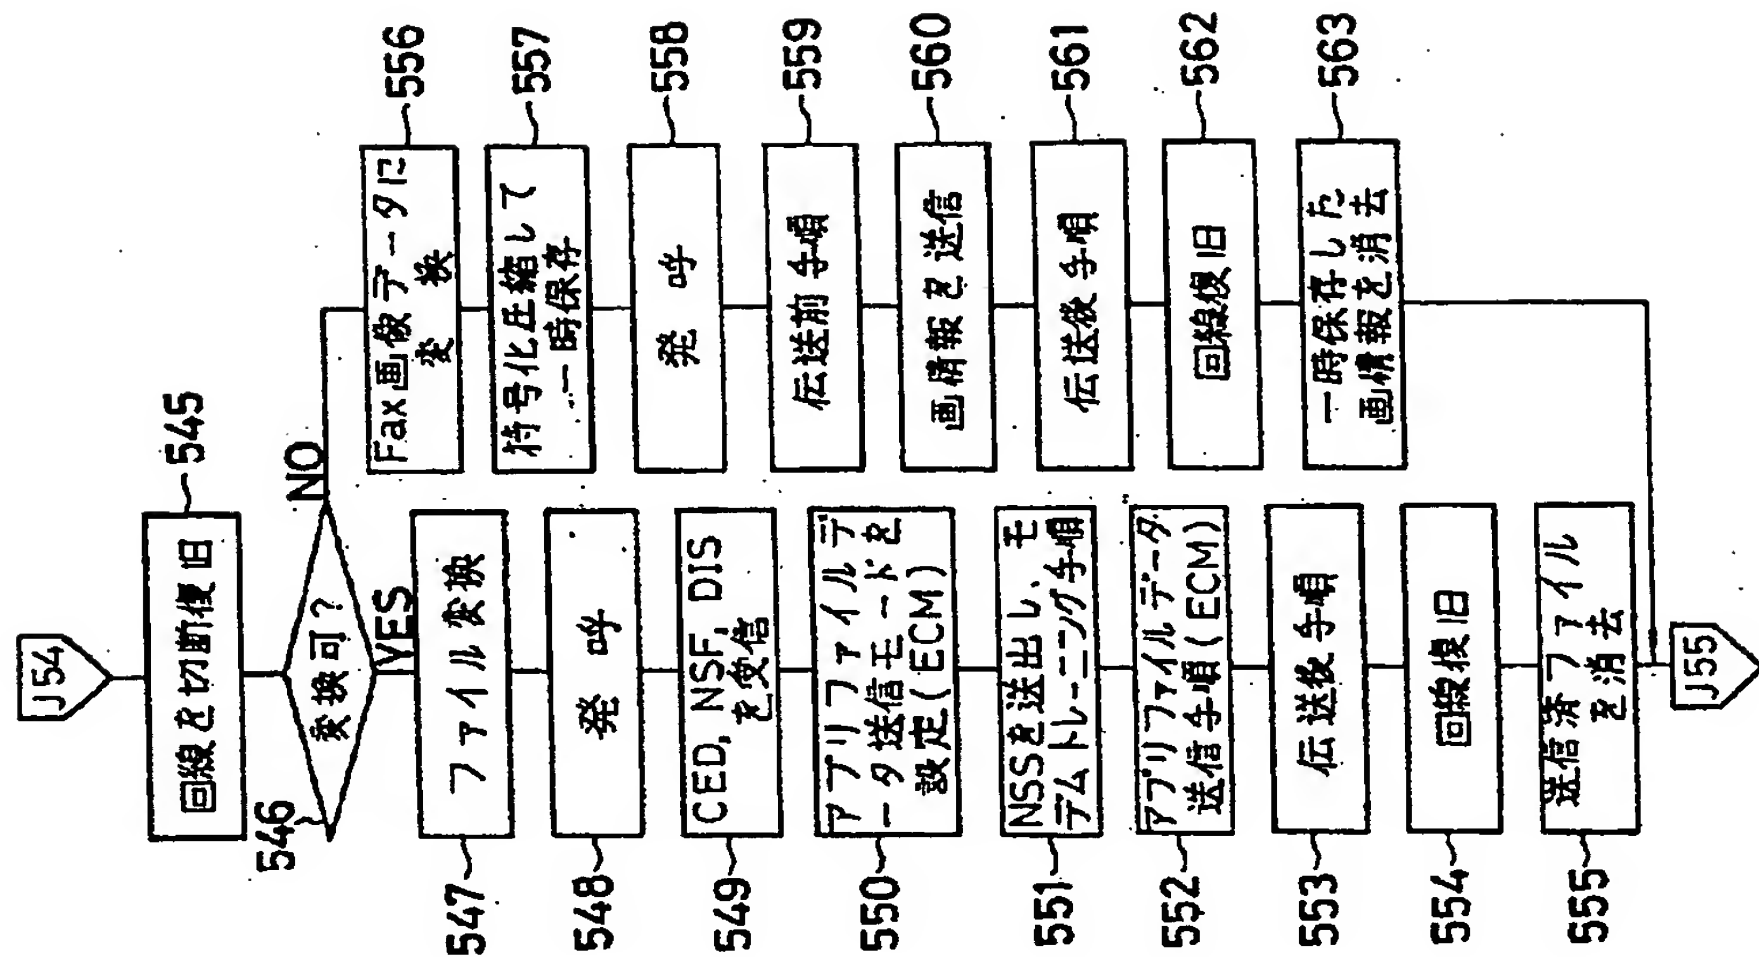 J54
回線を切断復旧
545
変換可?
546
NO
YES
ファイル変換
547
発 呼
548
CED, NSF, DIS
を受信
549
アプリファイルデ
ータ送信モードを
設定(ECM)
550
NSSを送出し、モ
デムトレーニング手順
551
アプリファイルデータ
送信手順(ECM)
552
伝送後手順
553
回線復旧
554
送信済ファイル
を消去
555
Fax画像データに
変 換
556
符号化圧縮して
一時保存
557
発 呼
558
伝送前手順
559
画情報を送信
560
伝送後手順
561
回線復旧
562
一時保存した
画情報を消去
563
J55